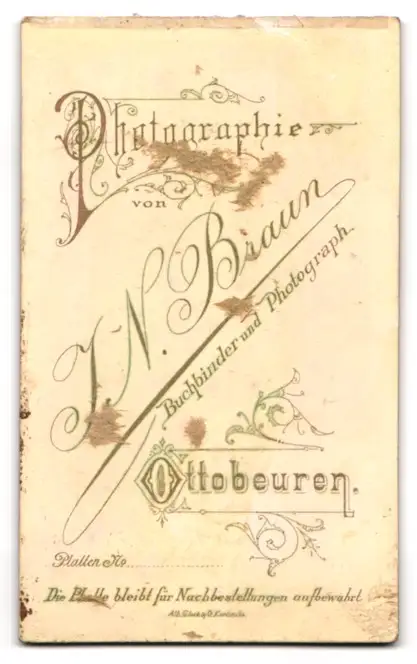 Photographie
von
J. N. Braun
Buchbinder und Photograph.
Ottobeuren.
Platten No
Die Platte bleibt für Nachbestellungen aufbewahrt.